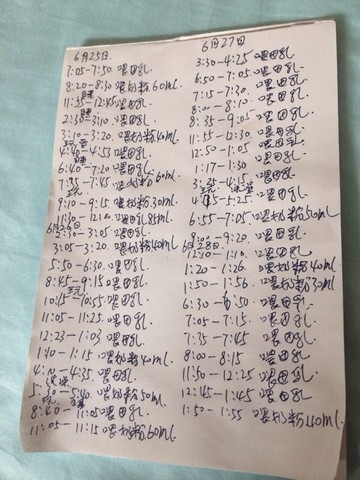 6月25日.
7:05-7:50 喂母乳.
8:20-8:30 喂奶粉60ml.
11:55-12:45喂母乳.
3:10-3:20. 喂奶粉40ml.
4:40-4:53 喂母乳.
6:40-7:20 喂母乳.
7:35-7:45 喂奶粉60ml.
9:10-9:15 喂奶粉30ml
6月26日
2:30-3:05 喂母乳.
3:05-3:20. 喂奶粉40ml
5:50-6:30. 喂母乳.
8:45-9:15 喂母乳.
10:15-10:55 喂母乳.
11:05-11:25 喂母乳.
12:23-1:03 喂母乳.
1:10-1:15 喂奶粉40ml.
4:35. 喂母乳
5:40. 喂奶粉50ml.
8:40-11:05 喂母乳
11:05-11:15 喂奶粉60ml.
6月27日
3:30-4:25 喂母乳.
6:50-7:05. 喂母乳.
7:15-7:30. 喂母乳
8:00-8:10. 喂母乳.
8:35-9:05 喂母乳.
11:55-12:30 喂母乳.
12:50-1:05 喂母乳.
1:17-1:30 喂母乳.
3:25-4:15 喂母乳.
5:25. 喂母乳.
6:55-7:05 喂奶粉50ml.
8:00-9:20. 喂母乳.
6月28日.
12:10-1:10 喂母乳.
1:20-1:26. 喂奶粉40ml
1:50-1:56. 喂奶粉30ml
6:30-6:50 喂母乳.
7:05-7:15. 喂母乳.
7:35-7:45 喂母乳.
8:00-8:15 喂母乳.
11:50-12:25 喂母乳.
12:45-1:45 喂母乳.
1:50-1:55 喂奶粉40ml.